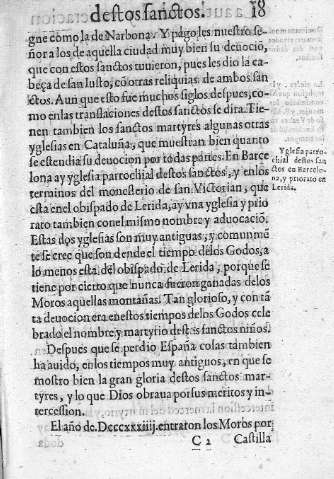 destos sanctos. 18
gue como la de Narbona. Y pagoles nuestro se-
ñor a los de aquella ciudad muy bien su deuociō,
que con estos sanctos tuuieron, pues les dio la ca-
beça de san Iusto, cō otras reliquias de ambos san
ctos. Aun que esto fue muchos siglos despues, co-
mo en las translaciones destos sanctos se dira. Tie-
nen tambien los sanctos martyres algunas otras
yglesias en Cataluña, que muestran bien quanto
se estendia su deuocion por todas partes. En Barce
lona ay yglesia parrochial destos sanctos, y en los
terminos del monesterio de san Victorian, que
esta en el obispado de Lerida, ay vna yglesia y prio
rato tambien con el mismo nombre y aduocaciō.
Estas dos yglesias son muy antiguas, y comunmē
te se cree que son dende el tiempo de los Godos, a
lo menos esta del obispado de Lerida, porque se
tiene por cierto que nunca fueron ganadas de los
Moros aquellas montañas. Tan glorioso, y con tā
ta deuocion era en estos tiempos de los Godos cele
brado el nombre y martyrio destos sanctos niños.
Despues que se perdio España cosas tambien
ha auido, en los tiempos muy antiguos, en que se
mostro bien la gran gloria destos sanctos mar-
tyres, y lo que Dios obraua por sus meritos y in-
tercession.
El año de Dcccxxxiiij. entraton los Moros por
C 2 Castilla
Yglesia parro-
chial destos san
ctos en Barcelo-
na, y priorato en
Lerida.